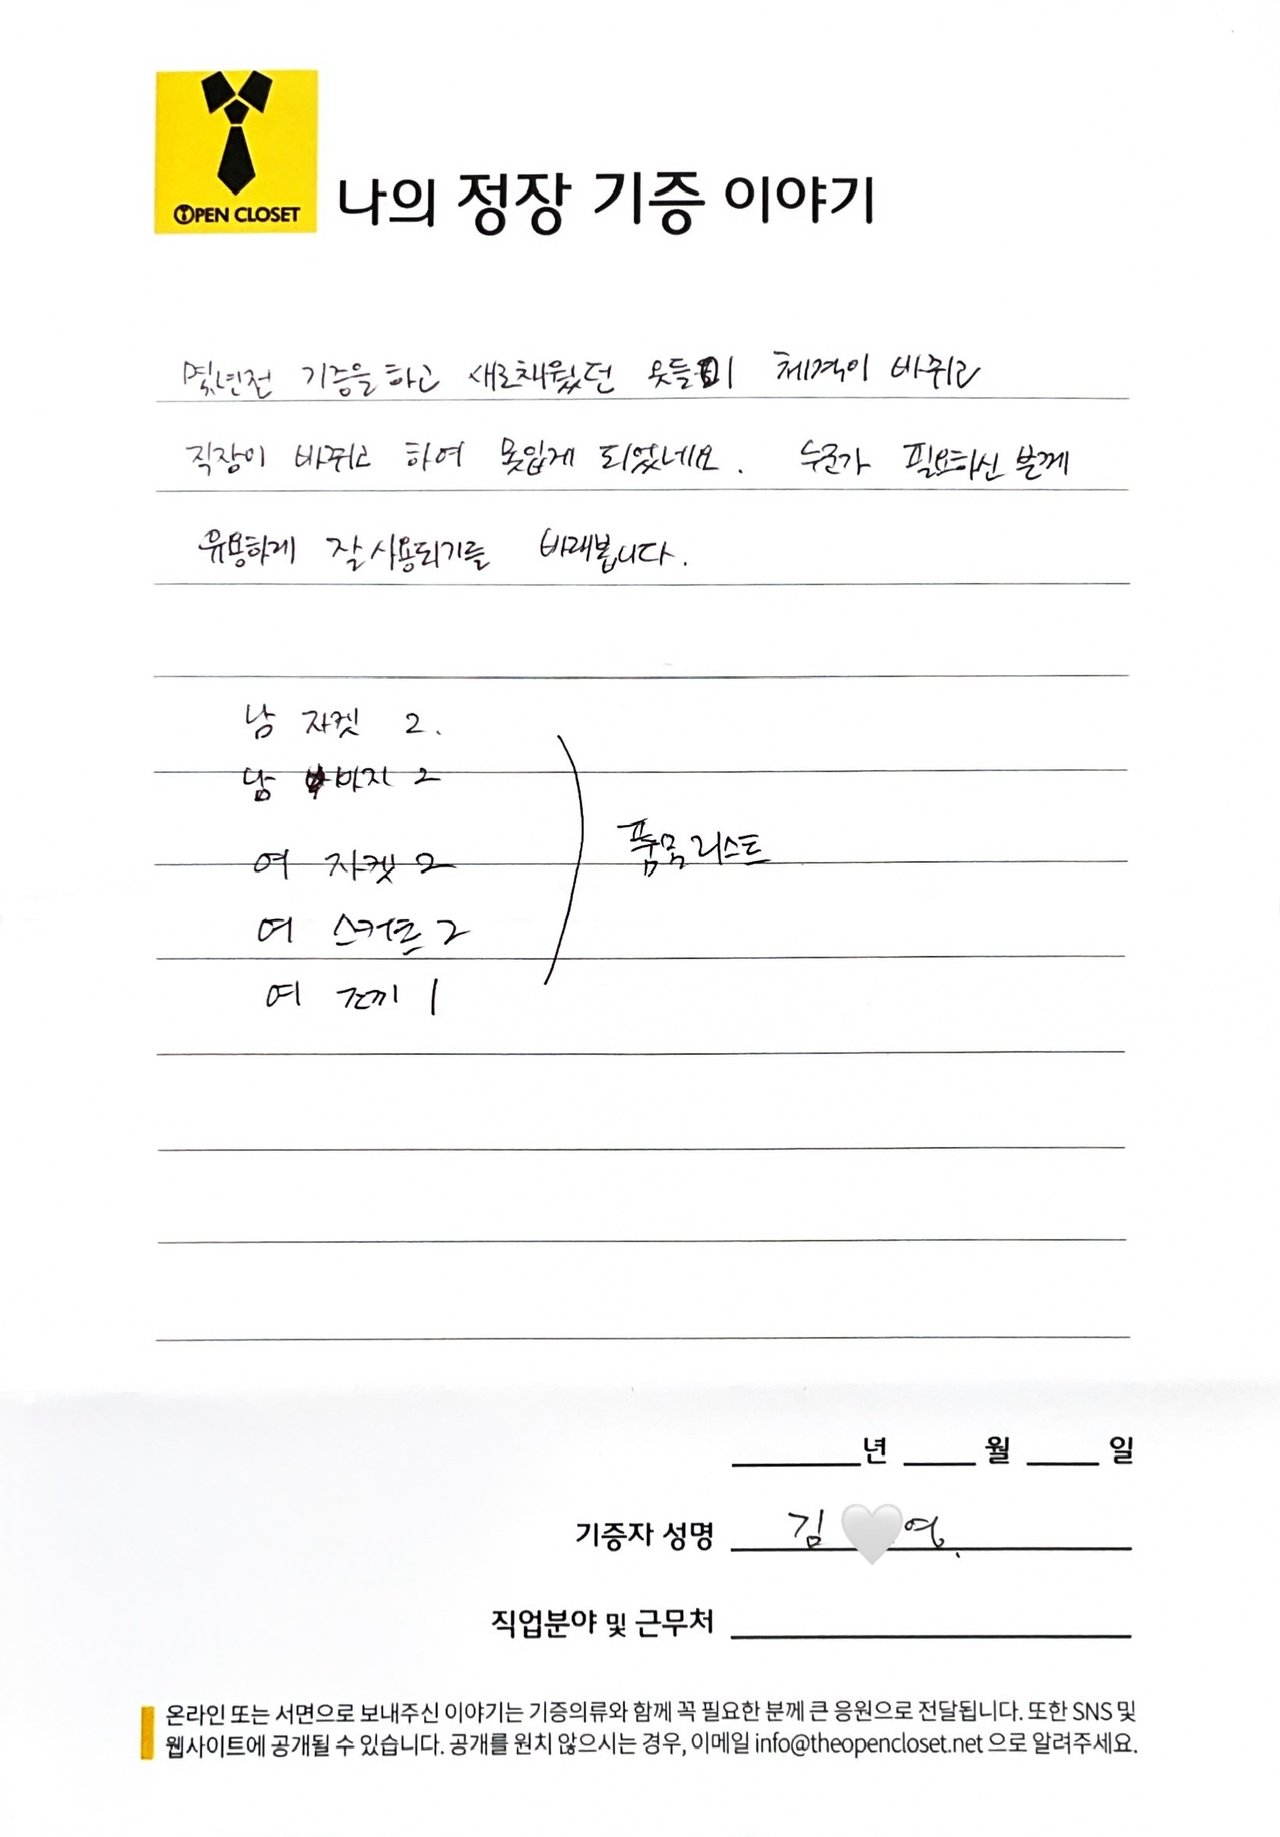 OPEN CLOSET
나의 정장 기증 이야기
몇년전 기증을 하고 새로 채웠던 옷들이 체격이 바뀌고
직장이 바뀌고 하여 못입게 되었네요. 누군가 필요하신 분께
유용하게 잘 사용되기를 바래봅니다.
남 자켓 2.
남 바지 2
여 자켓 2
품목 리스트
여 스커트 2
여 조끼 1
년 월 일
기증자 성명 김 🤍영.
직업분야 및 근무처
온라인 또는 서면으로 보내주신 이야기는 기증의류와 함께 꼭 필요한 분께 큰 응원으로 전달됩니다. 또한 SNS 및
웹사이트에 공개될 수 있습니다. 공개를 원치 않으시는 경우, 이메일 info@theopencloset.net 으로 알려주세요.